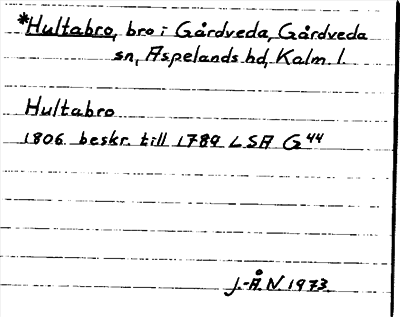 *Hultabro, bro i Gårdveda, Gårdveda
sn, Aspelands hd, Kalm. l.
Hultabro
1806 beskr. till 1789 LSA G 44
J.-Å. N. 1973